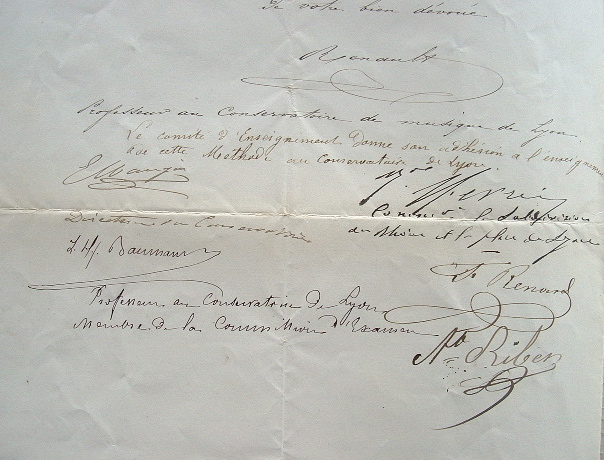 votre bien dévoué
Renault
Professeur au Conservatoire de musique de Lyon.
Le comité d'Enseignement Donne son adhésion a l'enseignement
de cette Methode au Conservatoire de Lyon.
E Mangin
Directeur du Conservatoire
du Rhône et la place de Lyon
L. H. Baumann
Renard
Professeur au Conservatoire de Lyon
Membre de la Commission d'Examen
Ribes